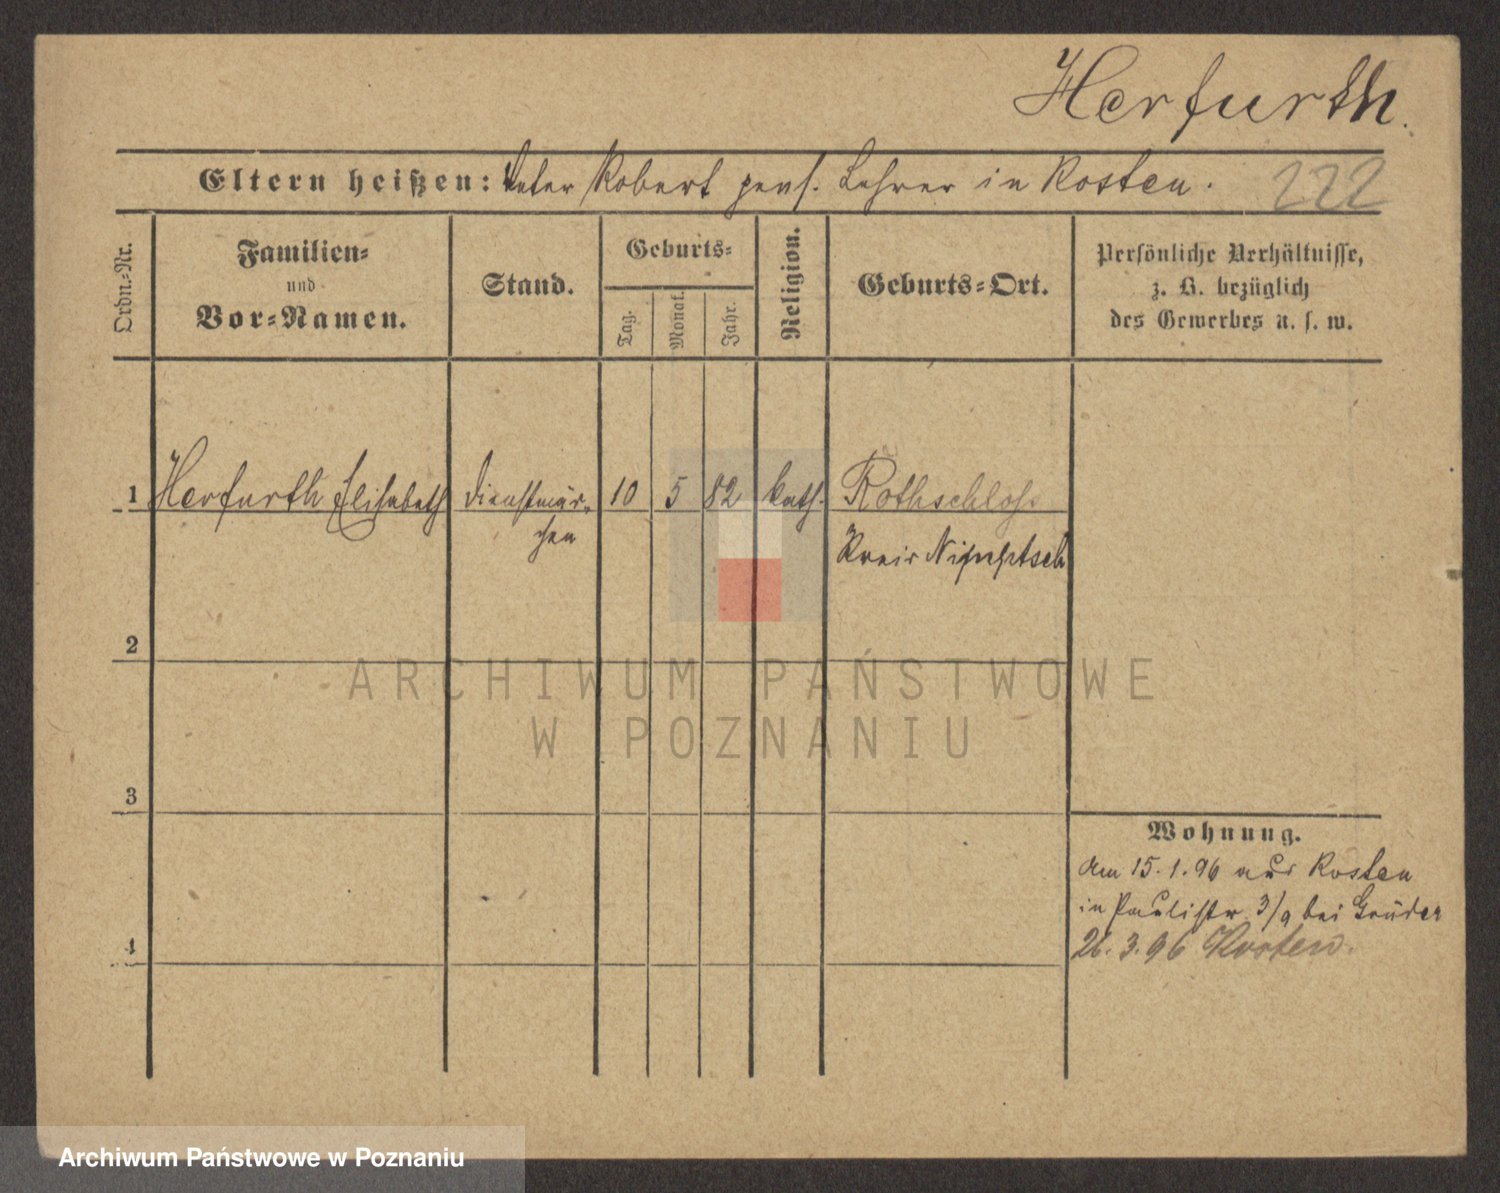 Herfurth.
Eltern heißen: Vater Robert pens. Lehrer in Kosten. 222
Ordn.-Nr.
Familien-
und
Vor-Namen.
Stand.
Geburts-
Tag.
Monat.
Jahr.
Religion.
Geburts-Ort.
Persönliche Verhältnisse,
z. B. bezüglich
des Gewerbes u. s. w.
1 Herfurth Elisabeth Dienstmäd- 10 5 82 kath. Rothschloss
chen Kreis Nimptsch
2
ARCHIWUM PAŃSTWOWE
W POZNANIU
3
Wohnung.
Am 15.1.96 aus Kosten
in Paulistr. 3/9 bei Gräder
4
26.3.96 Kosten.
Archiwum Państwowe w Poznaniu